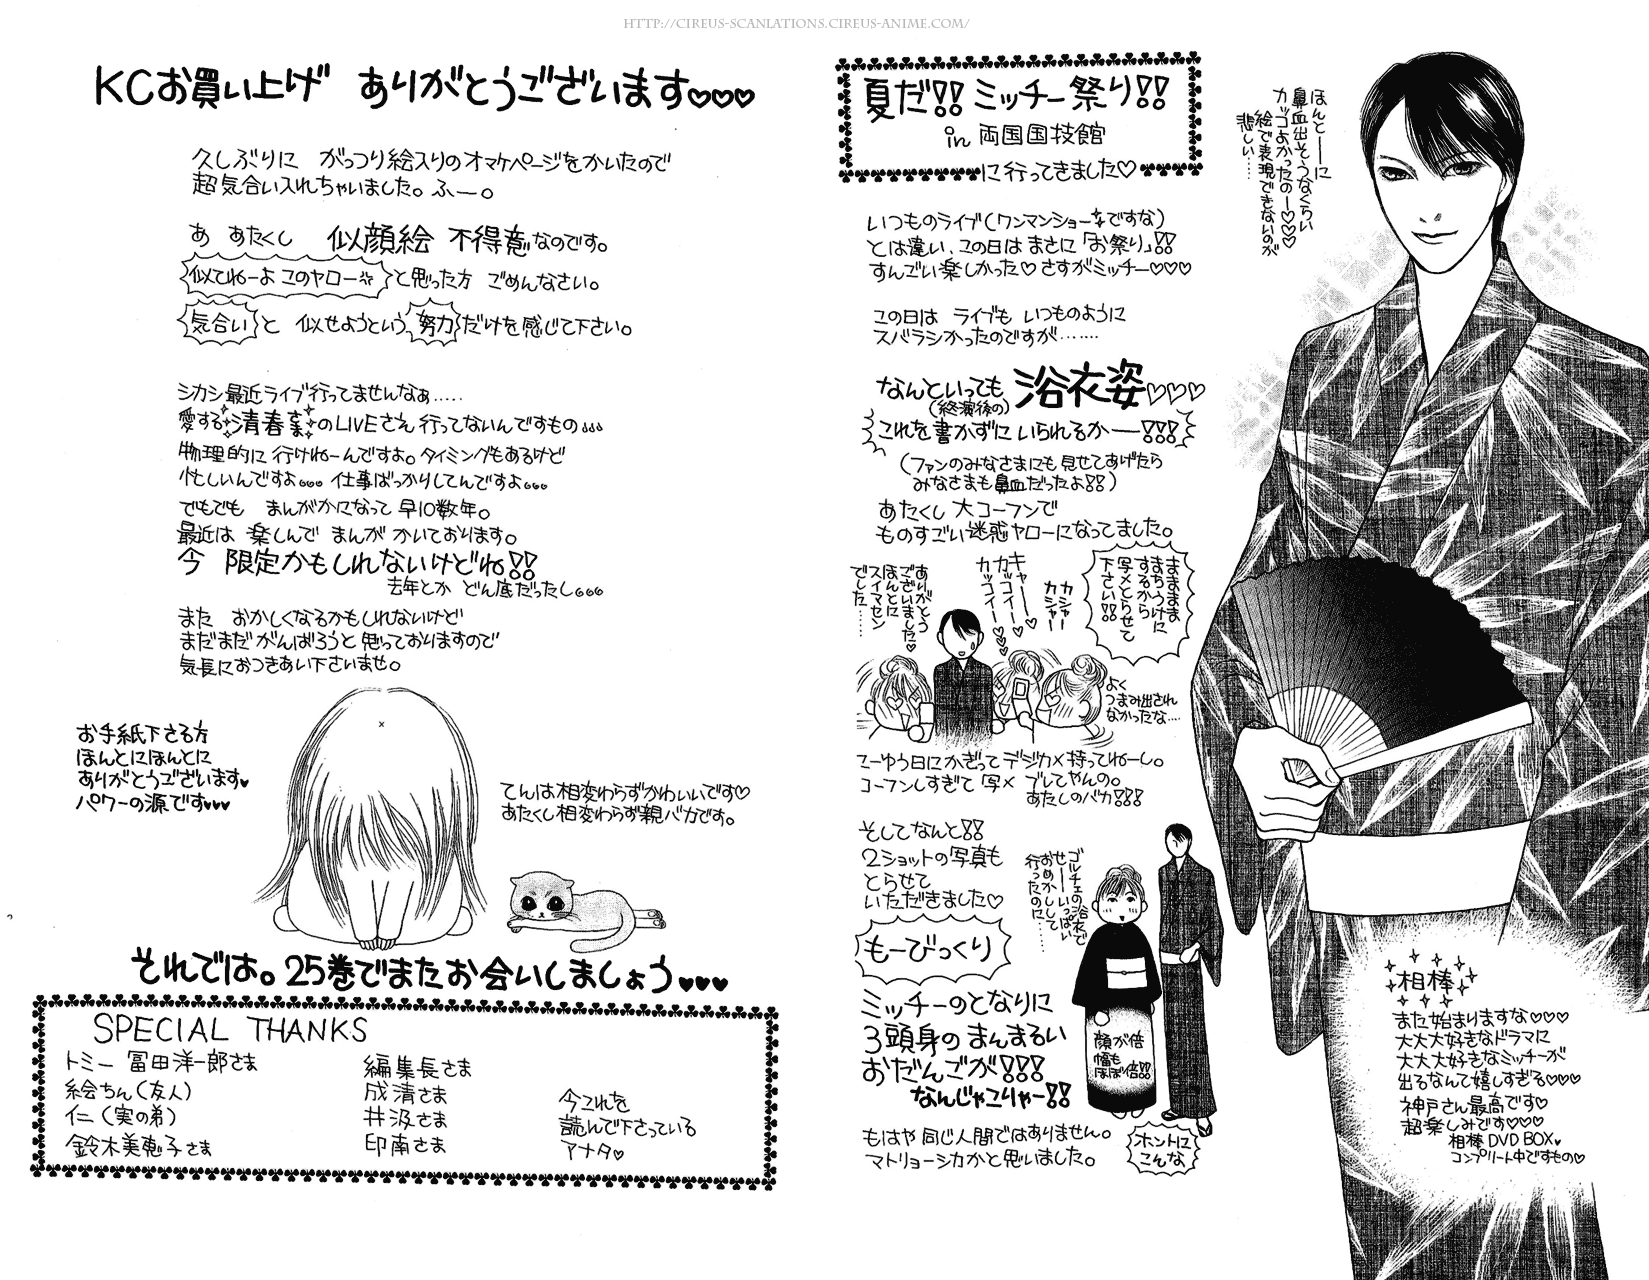 HTTP://CIREUS-SCANLATIONS.CIREUS-ANIME.COM/
夏だ!! ミッチー祭り!!
in 両国国技館
に行ってきました♡
ほんとーーに
鼻血出そうなくらい
カッコよかったのー♡♡♡
絵で表現できないのが
悲しい……
いつものライブ(ワンマンショーですな)
とは違い、この日は まさに「お祭り」!!
すんごい楽しかった♡ さすがミッチー♡♡♡
この日は ライブも いつものように
スバラシかったのですが……
なんといっても 浴衣姿♡♡♡
(終演後の)
これを書かずに いられるかー!!!
(ファンのみなさまにも 見せてあげたら
みなさまも鼻血だったよ!!)
あたくし 大コーフンで
ものすごい迷惑ヤローになってました。
まままま
まちうけに
するから
写メとらせて
下さい!!
カシャー
カシャー
キャー
カッコイー
カッコイー
ありがとう
ございました♥
ほんとに
スイマセン
でした……
よく
つまみ出され
なかったな…
てーゆう日にかぎって デジカメ持ってねーし。
コーフンしすぎて 写メ ブレてやんの。
あたしのバカ!!!
そしてなんと!!
2ショットの写真も
とらせて
いただきました♡
もーびっくり
ゴルチエの浴衣で
せーいっぱい
おめかしして
行ったのに……
ミッチーのとなりに
3頭身の まんまるい
おだんごが!!!
なんじゃこりゃー!!
顔が倍
幅も
ほぼ倍!!
もはや 同じ人間ではありません。
マトリョーシカかと思いました。
ホントに
こんな
相棒
また始まりますな♡♡♡
大大大好きなドラマに
大大大好きなミッチーが
出るなんて嬉しすぎる♡♡♡
神戸さん最高です♡
超楽しみです♡♡♡
相棒 DVD BOX♥
コンプリート中ですもの♡
KCお買い上げ ありがとうございます♡♡♡
久しぶりに がっつり絵入りのオマケページをかいたので
超気合い入れちゃいました。ふー。
あ あたくし 似顔絵 不得意なのです。
似てねーよ このヤロー と思った方 ごめんなさい。
気合い と 似せようという 努力 だけを感じて下さい。
シカシ最近ライブ行ってませんなぁ.....
愛する 青春 のLIVEさえ 行ってないんですもの
物理的に 行けねーんですよ。タイミングもあるけど
忙しいんですよ。。。仕事ばっかりしてんですよ。。。
でもでも まんがかになって 早10数年。
最近は 楽しんで まんが かいております。
今 限定かもしれないけどね!!
去年とか どん底だったし。。。
また おかしくなるかもしれないけど
まだまだ がんばろうと 思っておりますので
気長におつきあい下さいませ。
お手紙下さる方
ほんとにほんとに
ありがとうございます♥
パワーの源です♥♥♥
てんは相変わらずかわいいです♡
あたくし相変わらず親バカです。
それでは。25巻でまたお会いしましょう♥♥♥
SPECIAL THANKS
トミー 冨田洋一郎さま
絵ちん(友人)
仁(実の弟)
鈴木美恵子さま
編集長さま
成清さま
井汲さま
印南さま
今これを
読んで下さっている
アナタ♥